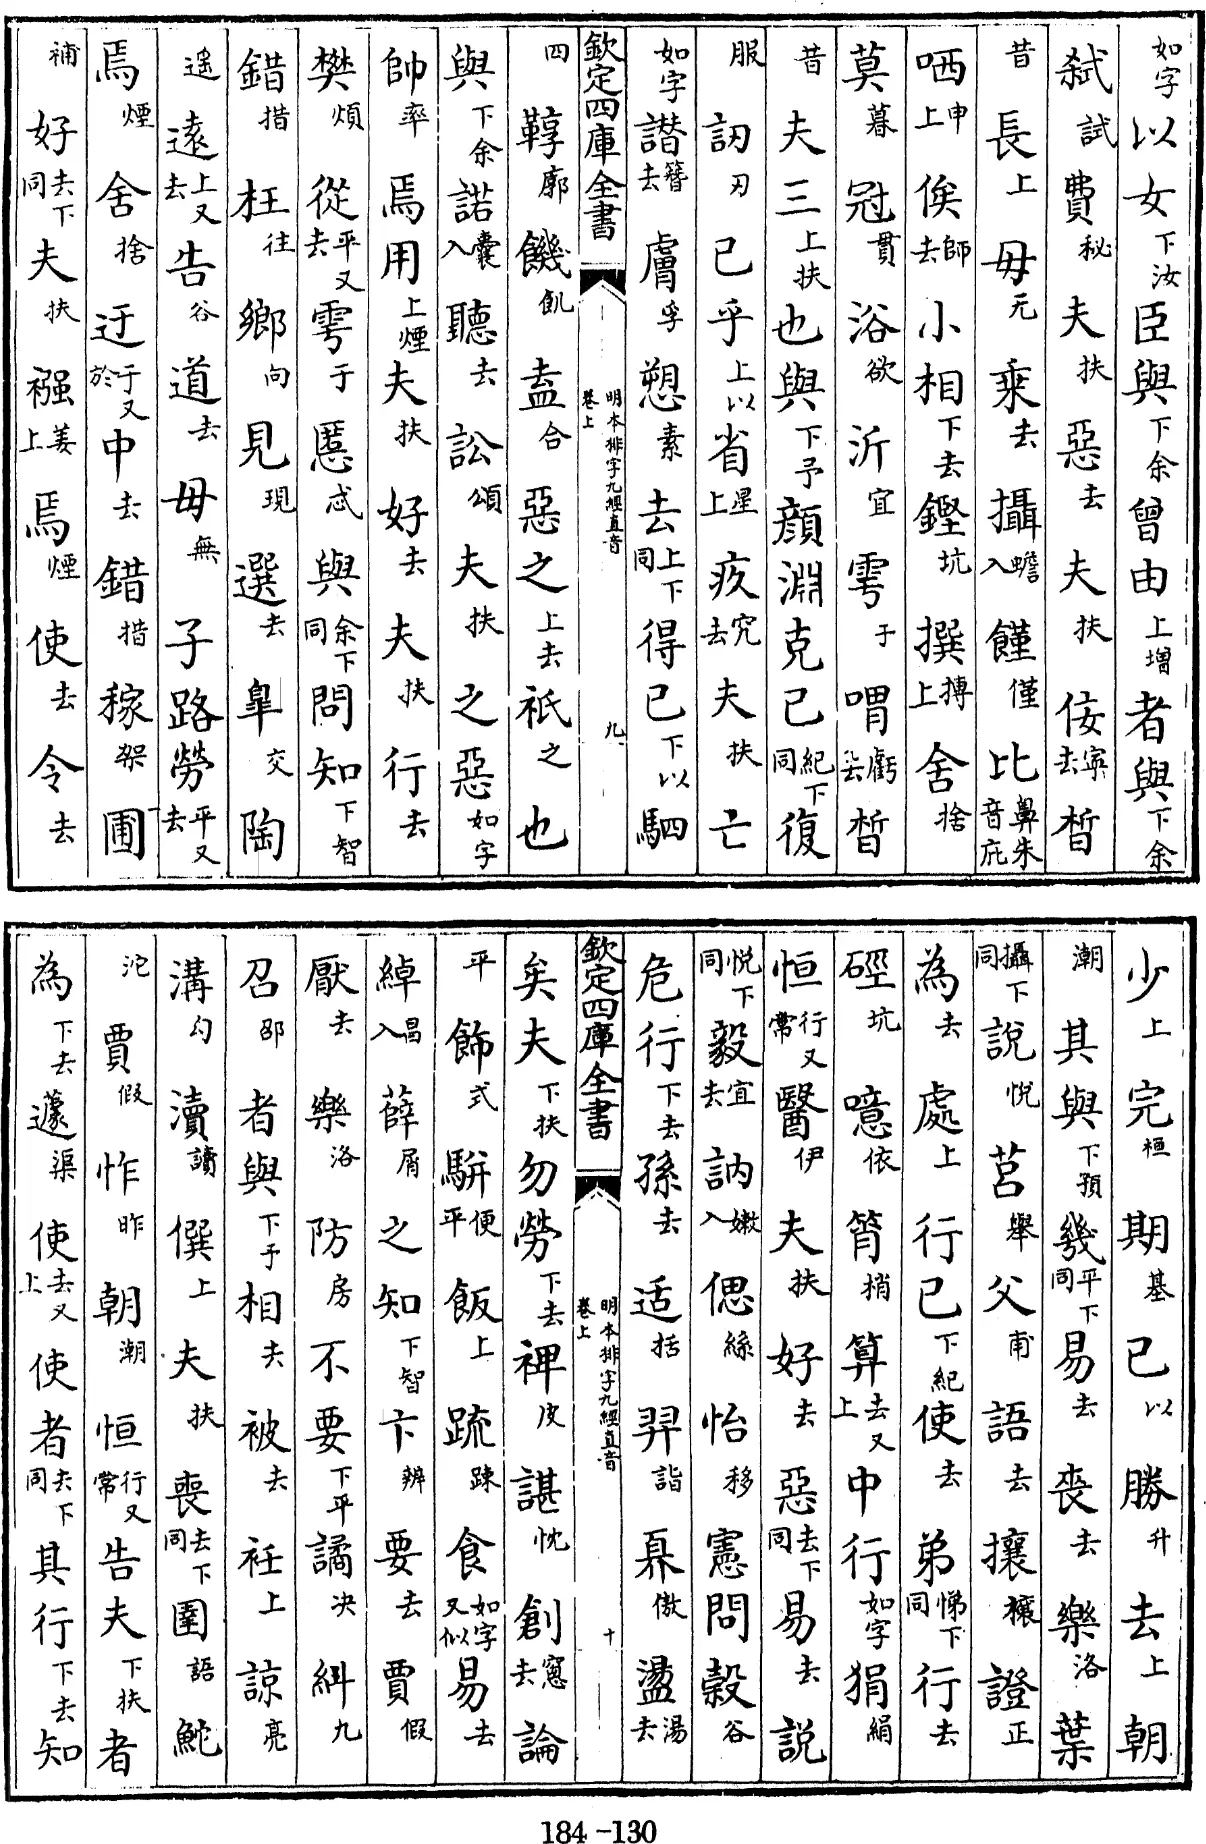 如字以女下汝臣與下余曾由上增者與下余
弑試費秘夫扶惡去夫扶佞寧去晳
昔長上毋无乘去攝蟾入饉僅比鼻朱音庇
哂申上俟師去小相下去鏗坑撰摶上舍捨
莫暮冠貫浴欲沂宜雩于喟虧去晳
昔夫三上扶也與下予顔淵克己紀下同復
服訒刃已乎上以省星上疚究去夫扶亡
如字譖簪去膚孚愬素去上下同得已下以駟
欽定四庫全書 明本排字九經直音 卷上 九
四鞟廓饑飢盍合惡之上去祇之也
與下余諾囊入聽去訟頌夫扶之惡如字
帥率焉用上煙夫扶好去夫扶行去
樊煩從平又去雩于慝忒與余下同問知下智
錯措枉往鄉向見現選去臯交陶
遥遠上又去告谷道去毋無子路勞平又去
焉煙舍捨迂于又於中去錯措稼架圃
補好去下同夫扶襁羌上焉煙使去令去
少上完桓期基已以勝升去上朝
潮其與下預幾平下同易去喪去樂洛葉
攝下同說悅莒舉父甫語去攘穰證正
為去處上行已下紀使去弟悌下同行去
硜坑噫依筲梢算去又上中行如字狷絹
恒行又常醫伊夫扶好去惡去下同易去説
悅下同毅宜去訥嫩入偲絲怡移憲問穀谷
危行下去孫去适括羿詣奡傲盪湯去
欽定四庫全書 明本排字九經直音 卷上 十
矣夫下扶勿勞下去裨皮諶忱創窻去論
平飾式駢便平飯上疏踈食如字又似易去
綽昌入薛屑之知下智卞辨要去賈假
厭去樂洛防房不要下平譎决糾九
召邵者與下予相去被去衽上諒亮
溝勾瀆讀僎上夫扶喪去下同圉語鮀
沱賈假怍昨朝潮恒行又常告夫下扶者
為下去蘧渠使去又上使者去下同其行下去知
184-130